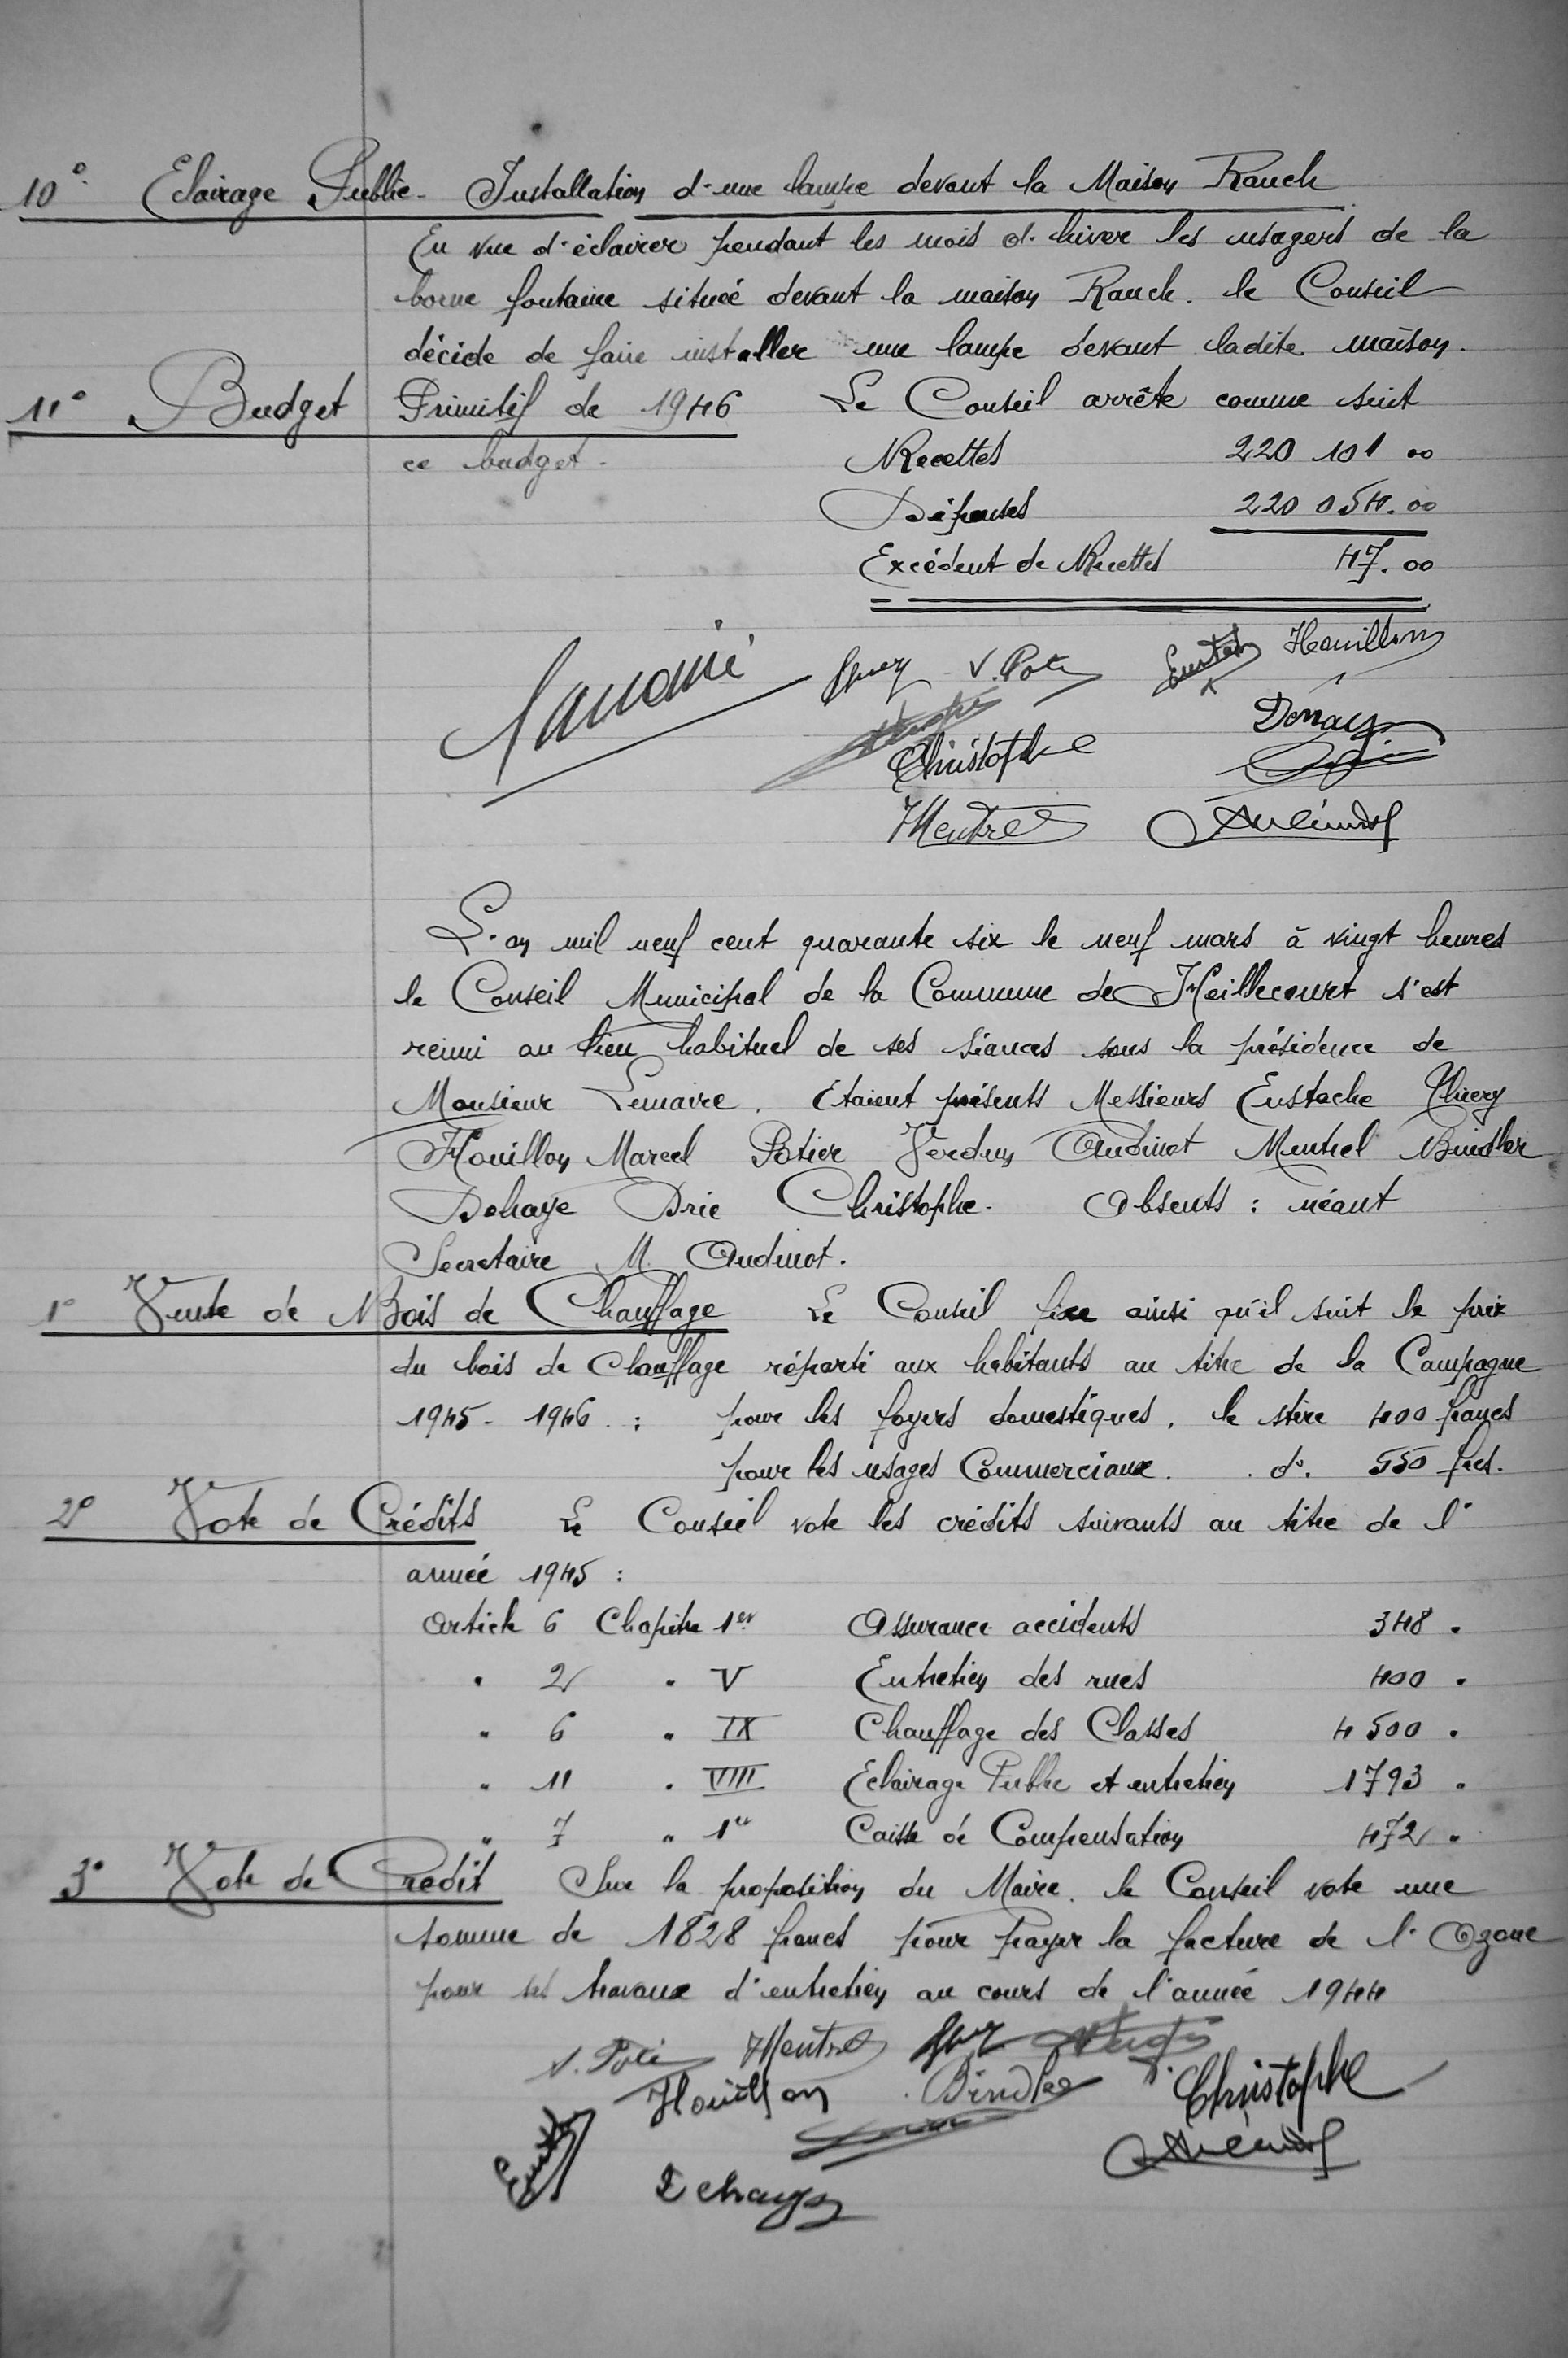 10° Eclairage Public - Installation d'une lampe devant la Maison Rauch
En vue d'éclairer pendant les mois d'hiver les usagers de la
borne fontaine située devant la maison Rauch. le Conseil
décide de faire installer une lampe devant ladite maison.
11° Budget Primitif de 1946 Le Conseil arrête comme suit
ce budget. Recettes 220 101 00
Dépenses 220 054.00
Excédent de Recettes 47.00
V. Poti Houillon
Christophe
Mentrel
L'an mil neuf cent quarante six le neuf mars à vingt heures
le Conseil Municipal de la Commune de Heillecourt s'est
réuni au lieu habituel de ses séances sous la présidence de
Monsieur Lemaire. Etaient présents Messieurs Eustache Thiery
Houillon Marcel Potier Verdun Audinot Mentrel Bindler
Dehaye Drie Christophe. Absents : néant
Secretaire M. Audinot.
1° Vente de Bois de Chauffage Le Conseil fixe ainsi qu'il suit le prix
du bois de Chauffage réparti aux habitants au titre de la Campagne
1945-1946 : pour les foyers domestiques. le stère 400 francs
pour les usages Commerciaux. d°. 550 frcs.
2° Vote de Crédits Le Conseil vote les crédits suivants au titre de l'
année 1945 :
Article 6 Chapitre 1er Assurance accidents 348 "
" 2 " V Entretien des rues 400 "
" 6 " IX Chauffage des Classes 4 500 "
" 11 " VIII Eclairage Public et entretien 1793 "
" 7 " 1er Caisse de Compensation 472 "
3° Vote de Crédit Sur la proposition du Maire. le Conseil vote une
somme de 1828 francs pour payer la facture de l'Ozone
pour ses travaux d'entretien au cours de l'année 1944
V. Poti Mentrel
Houillon Bindler Christophe